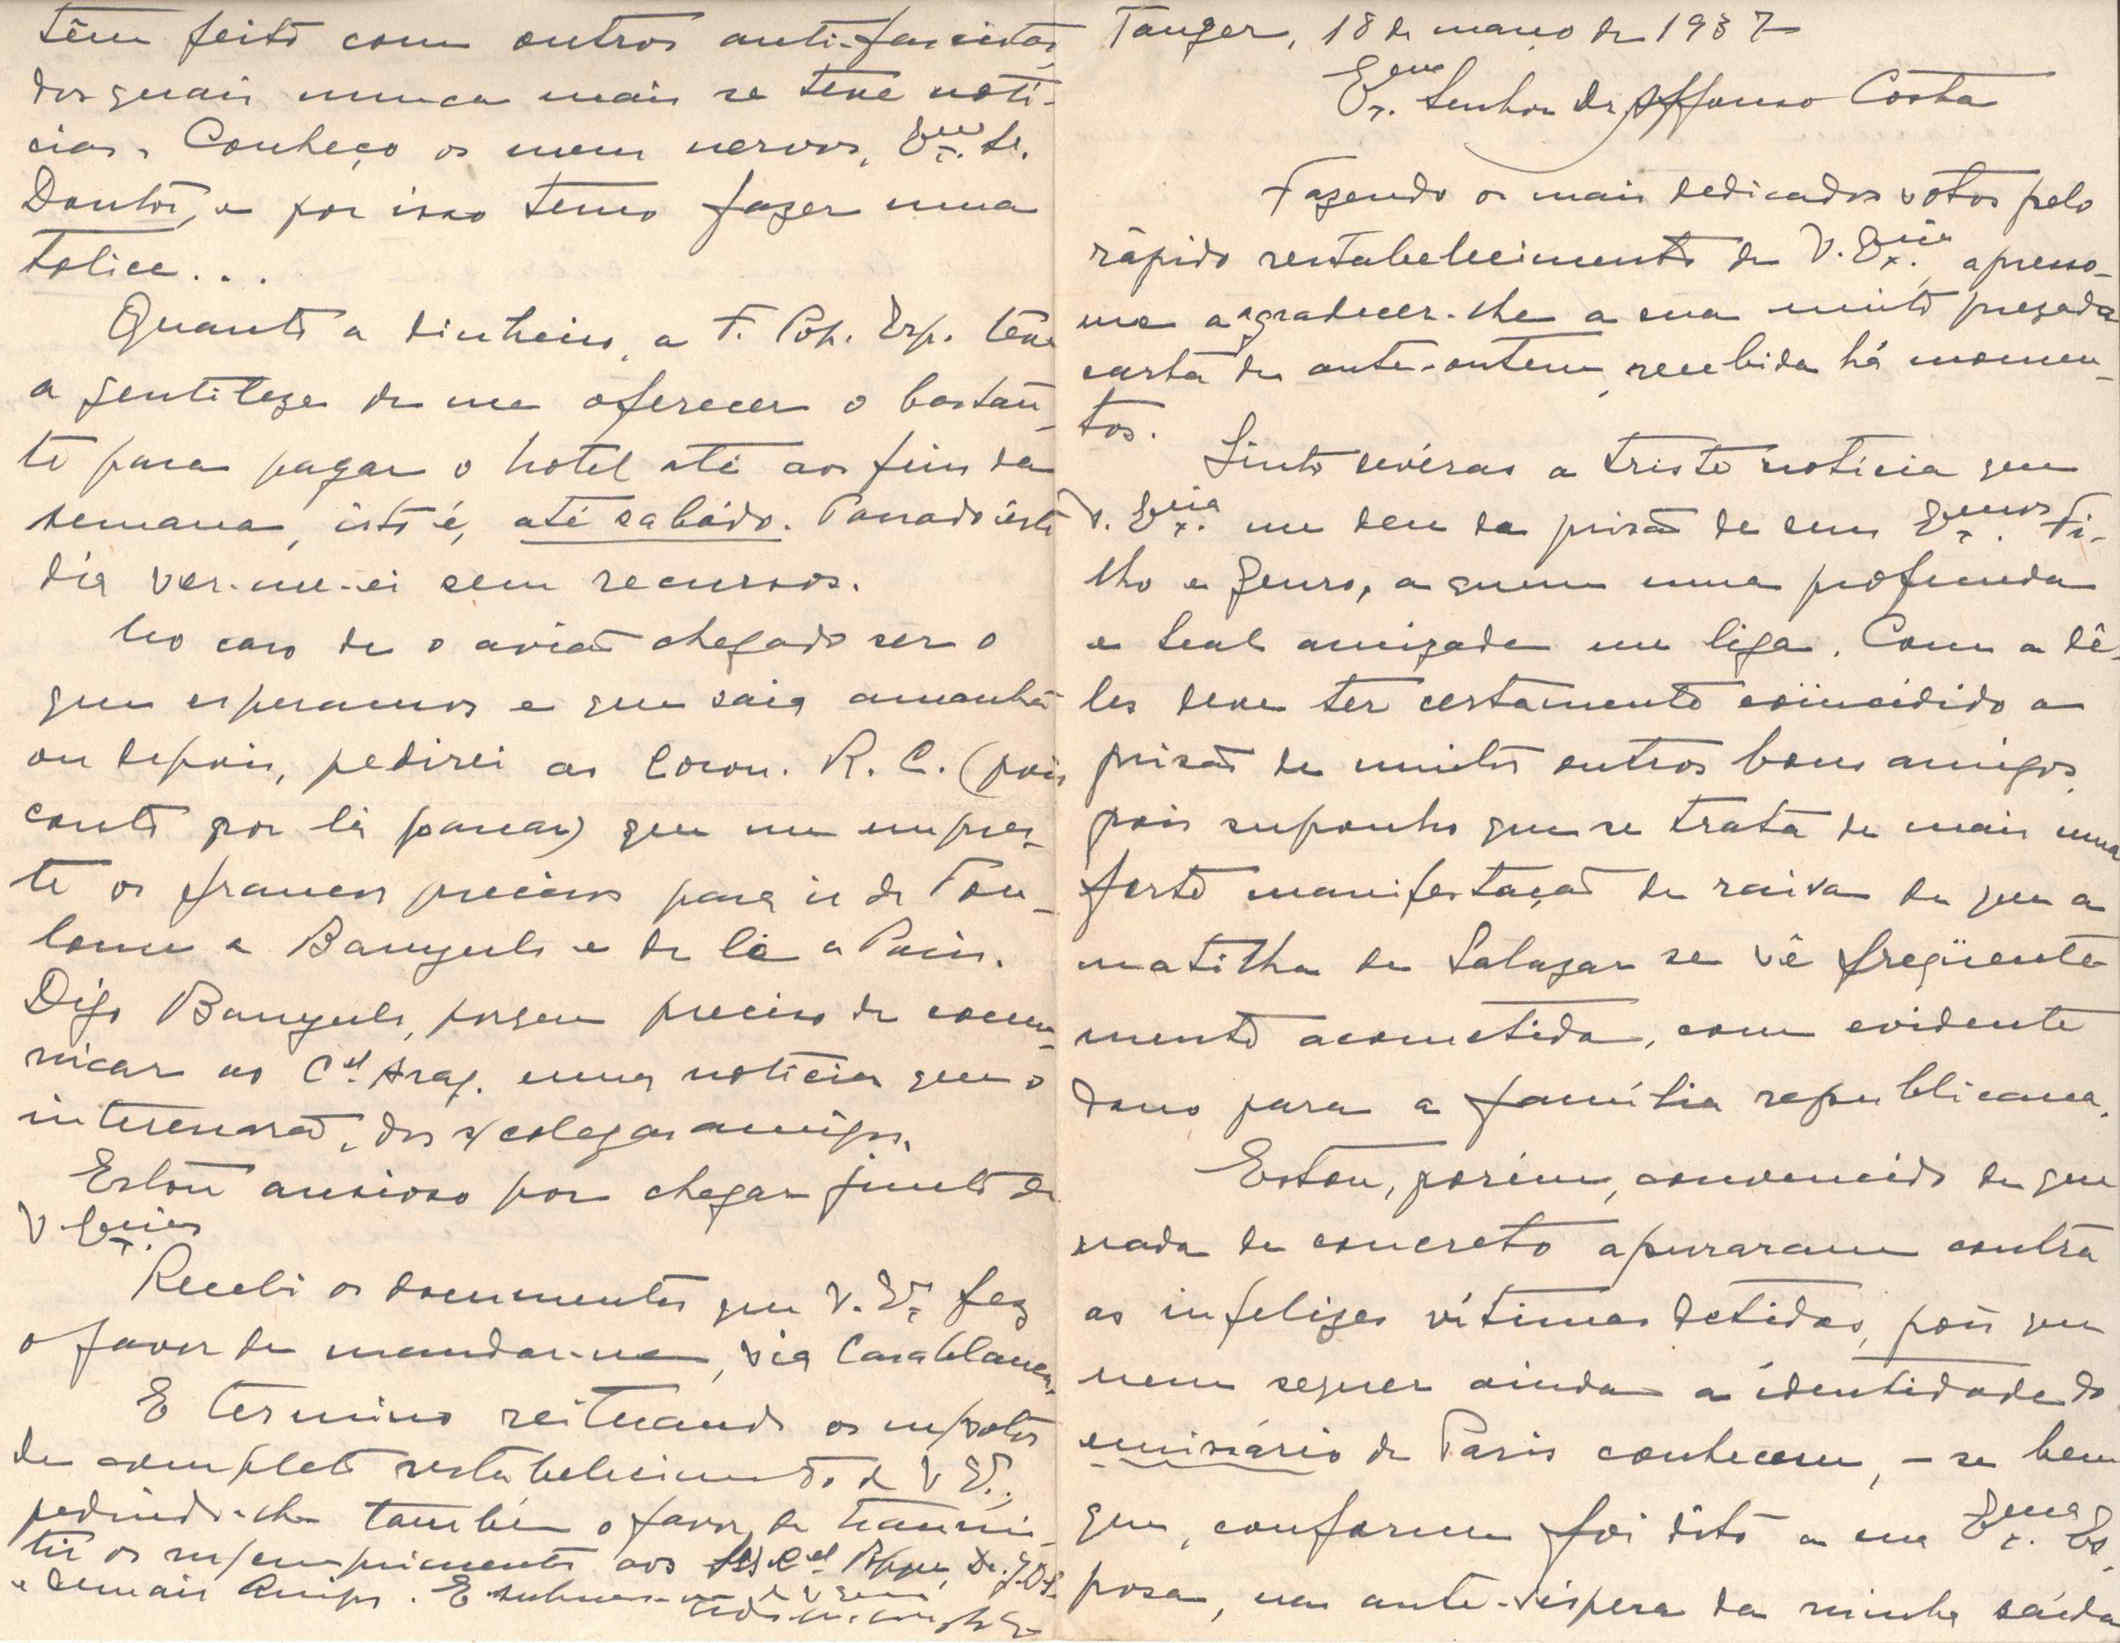 Tanger, 18 de março de 1937
Exmo. Senhor Dr. Affonso Costa
Fazendo os mais dedicados votos pelo
rápido restabelecimento de V. Excia., apresso-
me a agradecer-lhe a sua muito prezada
carta de ante-ontem, recebida há momen-
tos.
Sinto devéras a triste notícia que
V. Excia. me deu da prisão de seus Exmos. Fi-
lho e Genro, a quem uma profunda
e leal amizade me liga. Com a dê-
les deve ter certamente coïncidido a
prisão de muitos outros bons amigos,
pois suponho que se trata de mais uma
forte manifestação de raiva de que a
matilha de Salazar se vê freqüente
mente acometida, com evidente
dano para a família republicana.
Estou, porém, convencido de que
nada de concreto apuraram contra
as infelizes vítimas detidas, pois que
nem sequer ainda a identidade do
emissário de Paris conhecem, - se bem
que, conforme foi dito a sua Exma. Es-
posa, na ante-véspera da minha saída
têm feito com outros anti-fascistas,
dos quais nunca mais se teve notí-
cias. Conheço os meus nervos, Exmo. Sr.
Doutor, e por isso temo fazer uma
tolice...
Quanto a dinheiro, a F. Pop. Esp. teve
a gentileza de me oferecer o bastan-
te para pagar o hotel até ao fim da
semana, isto é, até sabádo. Passado êste
dia ver-me-ei sem recursos.
No caso de o avião chegado ser o
que esperamos e que saia amanhã
ou depois, pedirei ao Coron. R. C. (pois
conto por lá passar) que me empres-
te os francos precisos para ir de Tou-
louse a Banyuls e de lá a Paris.
Digo Banyuls, porque preciso de comu-
nicar ao Cel. Arag. umas notícias que o
interessarão, dos s/ colegas amigos.
Estou ansioso por chegar junto de
V. Excias.
Recebi os documentos que V. Ex. fez
o favor de mandar-me, via Casablanca.
E termino reiterando os m/ votos
de completo restabelecimento de V. Ex.,
pedindo-lhe também o favor de transmi-
tir os m/ cumprimentos aos Cel. Dr. J. D.
e demais Amigos. E subscrevo-me de V. Excia.